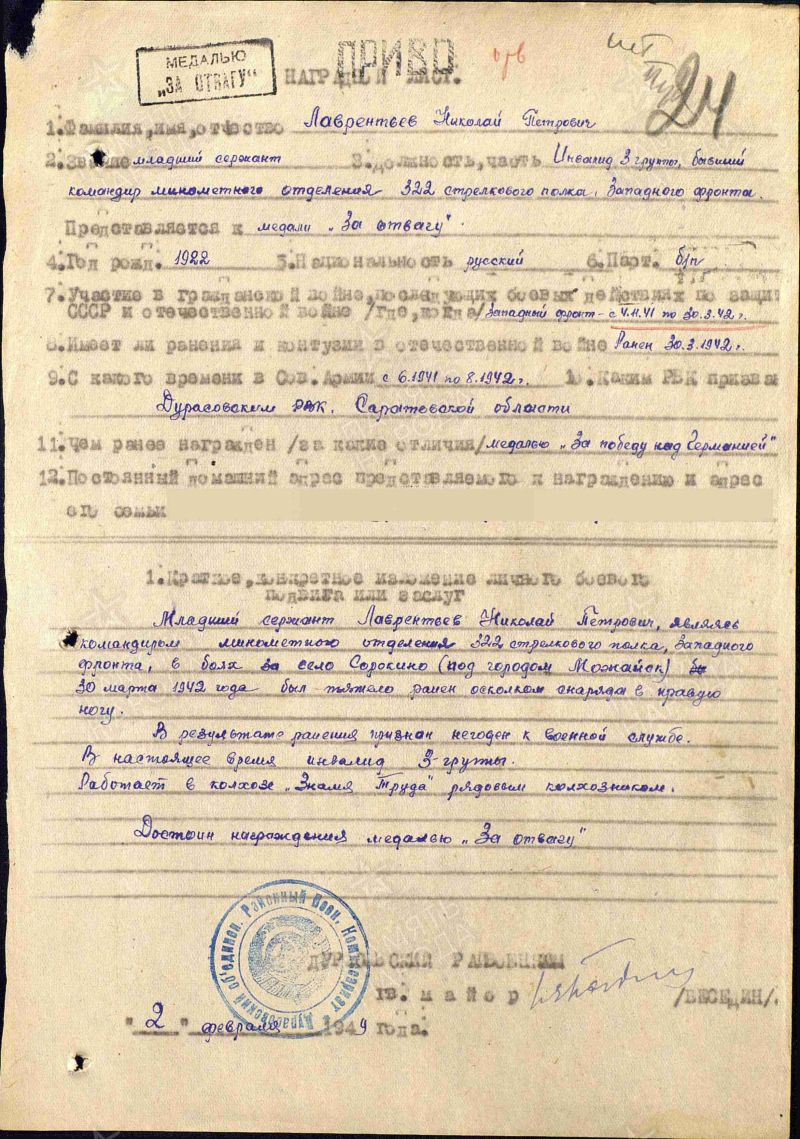 МЕДАЛЬЮ
"ЗА ОТВАГУ"
ПРИВО
НАГРАДНОЙ ЛИСТ.
24
1.Фамилия,имя,отчество Лаврентьев Николай Петрович
2.Звание младший сержант 3.должность,часть Инвалид 3 группы, бывший
командир минометного отделения 322 стрелкового полка, Западного фронта.
Представляется к медали „За отвагу".
4.Год рожд. 1922 5.Национальность русский 6.Парт. б/п
7.Участие в гражданской войне,последующих боевых действиях по защит
СССР и отечественной войне /где,когда/ Западный фронт - с 4.11.41 по 30.3.42 г.
8.Имеет ли ранения и контузии в отечественной войне Ранен 30.3.1942 г.
9.С какого времени в Сов.Армии с 6.1941 по 8.1942 г. 10.Каким РВК призван
Дурасовским РВК. Саратовской области
11.Чем ранее награжден /за какие отличия/ медалью „За победу над Германией"
12.Постоянный домашний адрес представляемого к награждению и адрес
его семьи
1.Краткое,конкретное изложение личного боевого
подвига или заслуг
Младший сержант Лаврентьев Николай Петрович, являясь
командиром минометного отделения 322 стрелкового полка, Западного
фронта, в боях за село Сорокино (под городом Можайск)
30 марта 1942 года был тяжело ранен осколком снаряда в правую
ногу.
В результате ранения признан негоден к военной службе.
В настоящее время инвалид 3-группы.
Работает в колхозе „Знамя Труда" рядовым колхозником.
Достоин награждения медалью „За отвагу"
Дурасовский об'единен. Районный Воен. Комиссариат
РАЙВОЕНКОМ
гв. майор /БЕСЕДИН/.
"2" февраля 1949 года.